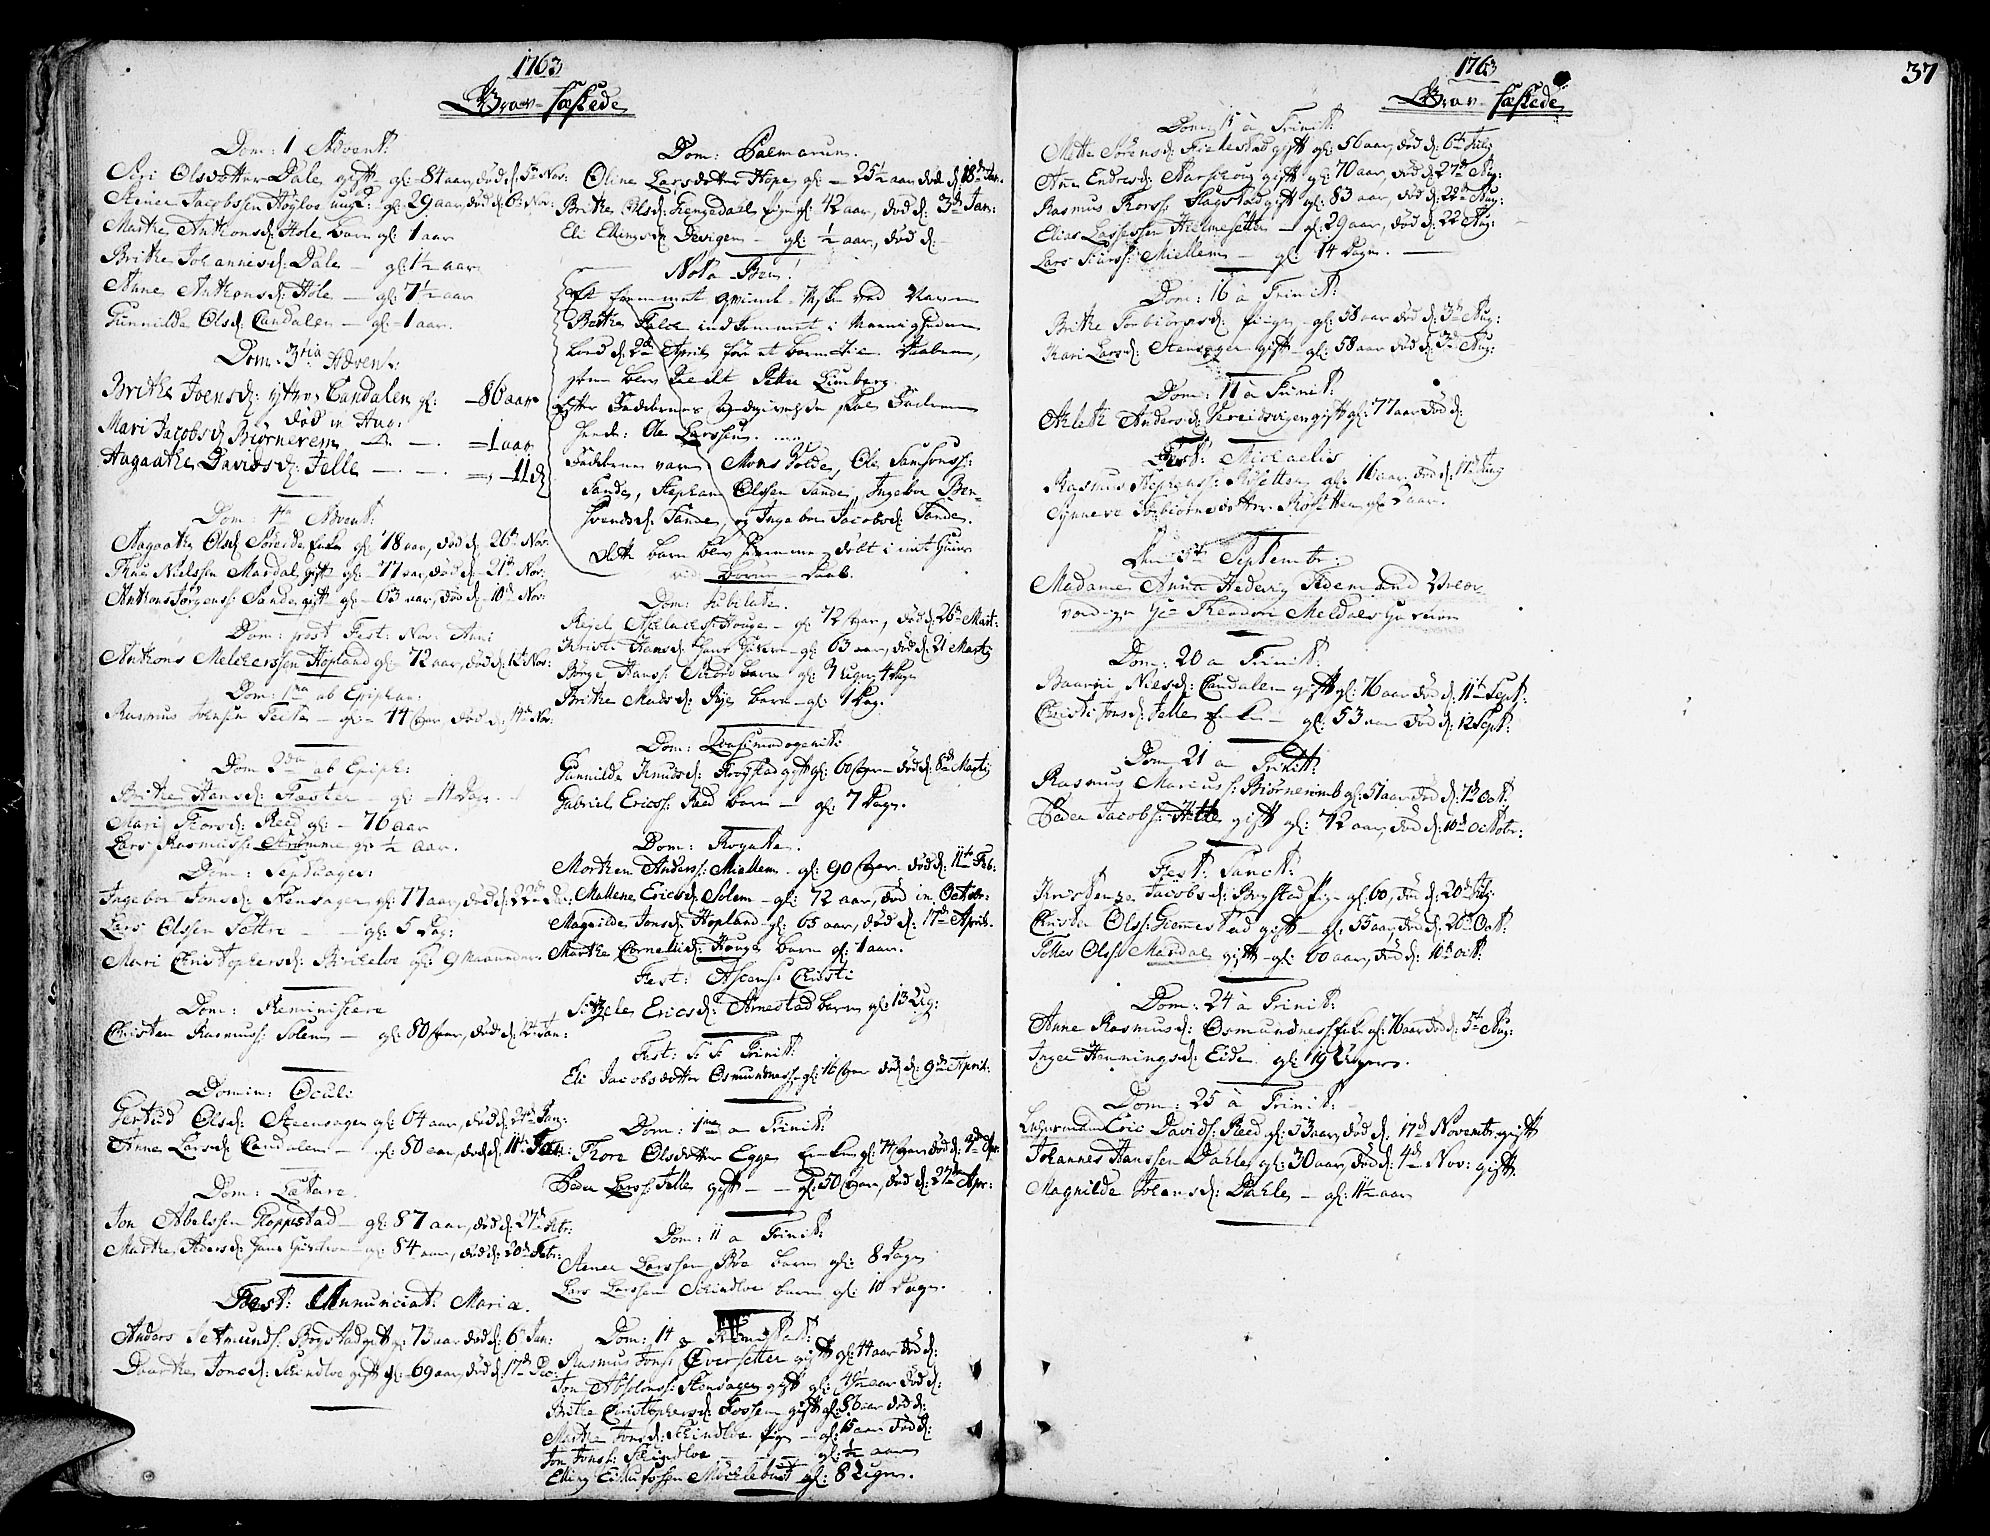 1763
Grav-fæstede
Dom: 1 Advent:
Siri Olsdotter Dale gift gl: 84 aar, død d: 5te Nov:
Stener Jacobssen Høyloe ungk: gl: 29 aar, død d: 6te Nov:
Marthe Anthonsd: Hole barn gl: 1 aar
Brithe Johannisd: Dale — gl: 1½ aar
Anne Anthonsd: Hole — gl: 7½ aar
Gunnilde Olsd: Candalen — gl: 1 aar.
Dom: 3tia Advent:
Brithe Joensd: ytter Candalen gl: — 86 aar
død in Aug:
Mari Jacobsd: Biørnerem — 1 aar
Aagaathe Davidsd: Felle — 11 d
Dom: 4ta Advent:
Aagaathe Olsd: Sørende enke gl: 78 aar, død d: 26de Nov:
Knud Nielssen Mardal gift gl: 77 aar, død d: 21de Nov:
Anthon Jørgenss: Sande gift gl: 63 aar, død d: 10de Nov:
Dom: post Fest: Nov: Anni
Anthons Melcherssen Hopland gl: 72 aar, død d: 12te Nov:
Dom: 1ma ab Epiphan:
Rasmus Joensen Feite — gl: 44 aar død d: 14de Nov:
Dom 2dn ab Epiph:
Brithe Hansd: Fæster gl: 14 Dage
Mari Thorsd: Reed gl: — 76 aar
Lars Rasmuss: Strømme gl: ½ aar.
Dom: Septuages:
Ingebor Jonsd: Stensager gl: 77 aar, død d: 22de Dec:
Lars Olssen Settre — gl: 5 Dag:
Mari Christophersd: Bircheloe gl: 9 Maaneder.
Dom: Reminiscere
Christen Rasmuss: Solem — gl: 80 aar, død d: 12t Jan:
Domin: Oculi
Gertud Olsd: Steensager gl: 64 aar, død d: 24de Jan:
Anne Larsd: Candalen — gl: 80 aar, død d: 11te Feb:
Dom: Lætare.
Jon Abelssen Gloppestad — gl: 87 aar, død d: 27de Febr:
Marthe Adersd: Hans — gl: 84 aar, død d: 20de Febr:
Fest: Annunciat: Mariæ.
Anders Setmunds: Brystad gift gl: 73 aar død d: 6te Jan:
Daarthe Jonsd: Schindloe gift gl: 69 aar, død d: 17de Dec:
Dom: Palmarum.
Oline Larsdotter Hope gl: — 25½ aar død d: 18de Jan:
Brithe Olsd: Hengedall pige gl: 42 aar, død d: 3de Jan:
Eli Ellingsd: Devigen — gl: ½ aar, død d: —
Nota Ben:
Et fremmet qvinde-Menniske ved Navn
Brithe Falde indkommet i Menigheden
lond d: 2de April fører et barn til Daaben,
som blev kaldt Petter Limberg.
Efter Fadderenes Udgivelse skal Faderen
hende: Ole Larssen. ....
Faddrene vare Mons Volde, Ole Samsons:
Sande, Stephan Olssen Sande, Ingebor Ber-
hvendsd: Sande, og Ingebor Jacobsd: Sande.
Dette barn blev hiemme-døbt i mit Huus
ved Borum-Daab.
Dom: Jubilate.
Rejel Aslachs: Houge — gl: 72 aar, død d: 26de Mart:
Kristi Hansd: Hans — gl: 63 aar, død d: 21 Martij
Børge Hanss: Eide barn gl: 3 uger, 4 Dage
Brithe Madsd: Rye barn — gl: 1 Dag.
Dom: Quasimodogeniti
Gunnilda Knudsd: Frøystad gift gl: 60 aar død d: 8de Martij
Gabriel Ericss: Reed barn — gl: 7 Dage.
Dom: Rogate.
Morthen Anderss: Miellem gl: 90 aar død d: 11te Feb:
Mallene Ericsd: Solem — gl: 72 aar, død in Octobr:
Magnilde Jonsd: Hopland gl: 65 aar, død d: 17de April.
Marthe Cornelii d: Houge barn gl: 1 aar.
Fest: Ascens: Christi
Sitzele Ericsd: Arnestad barn gl: 13 Ug:
Fest: S: S: Trinit:
Eli Jacobsdotter Osmundness gl: 16 aar død d: 9de April:
Dom: 1ma a Trinit:
Thore Olsdotter Egge Enke gl: 74 aar død d: 2de Apr:
Peder Larss: Felle gift — gl: 50 aar, død d: 27de Apr:
Dom: 11 a Trinit:
Stener Larssen Bøe barn gl: 8 Dage
Lars Larssen Schindloe barn gl: 10 Dage.
Dom: 14 a Trinitat:
Rasmus Jons: Qversetter gift gl: 44 aar død d:
Jon Absolons: Stensager gift gl: 41½ aar død d:
Brithe Christophersd: Fossem gift gl: 86 aar død d:
Marthe Jonsd: Schindloe pige — gl: 15 aar død d:
Jon Jonss: Schindloe — gl: ½ aar
Elling Ellufssen Mycklebust gl: 8 Uger.
1763
Grav-fæstede
37
Dom: 15 à Trinit:
Mette Sørensd: Fielestad gift gl: 56 aar, død d: 6te July
Ane Endresd: Aarskoug gift gl: 70 aar, død d: 27de Aug:
Rasmus Korss: Flagstad gift gl: 83 aar, død d: 22de Aug:
Elias Lassessen Hielmesetter — gl: 29 aar, død d: 22 Aug:
Lars Siurs: Miellem — gl: 14 Dage. —
Dom: 16 à Trinit:
Brithe Torbiørnsd: pige gl: 58 aar død d: 3de Aug:
Kari Larsd: Stensager gift — gl: 58 aar død d: 3de Aug:
Dom: 17 à Trinit:
Arlethe Andersd: Vereidsvigen gift gl: 77 aar død d:
Fest: Michaelis
Rasmus Stephenss: Røsetten gl: 16 aar død d: 17de Aug
Synneve Torbiørnsdotter Røsetten gl: aar.
Den 5te Septembr:
Madame Anna Hedevig
Hr Theodor Meldals
Dom: 20 a Trinit:
Baarni Nielsd: Candalen gift gl: 76 aar død d: 11te Sept:
Christi Jonsd: Felle Enke — gl: 53 aar død d: 12 Sept:
Dom: 21 a Trinit:
Rasmus Mariuss: Biørnerimb gl: 51 aar død d: 7de Oct:
Peder Jacobs: Helle gift gl: 72 aar, død d: 10de Octobr:
Fest: Sanct:
Kristenze Jacobsd: Brystad pig gl: 60, død d: 20de July:
Christen Olss: Giemmestad gift — gl: 55 aar, død d: 20de Oct:
Tolles Olss: Mardal gift — gl: 60 aar, død d: 10de Oct:
Dom: 24 à Trinit:
Anne Rasmusd: Osmundness enke gl: 76 aar død d: 5te Aug:
Inger Henningsd: Eide gl: 19 Ugers.
Dom: 25 à Trinit:
Lægsmand Eric Davids: Reed gl: 53 aar, død d: 17de Novembr: gift
Johannes Hanssen Dahle gl: 30 aar, død d: 4de Nov: gift.
Magnilde Joensd: Dahle — gl: 1½ aar